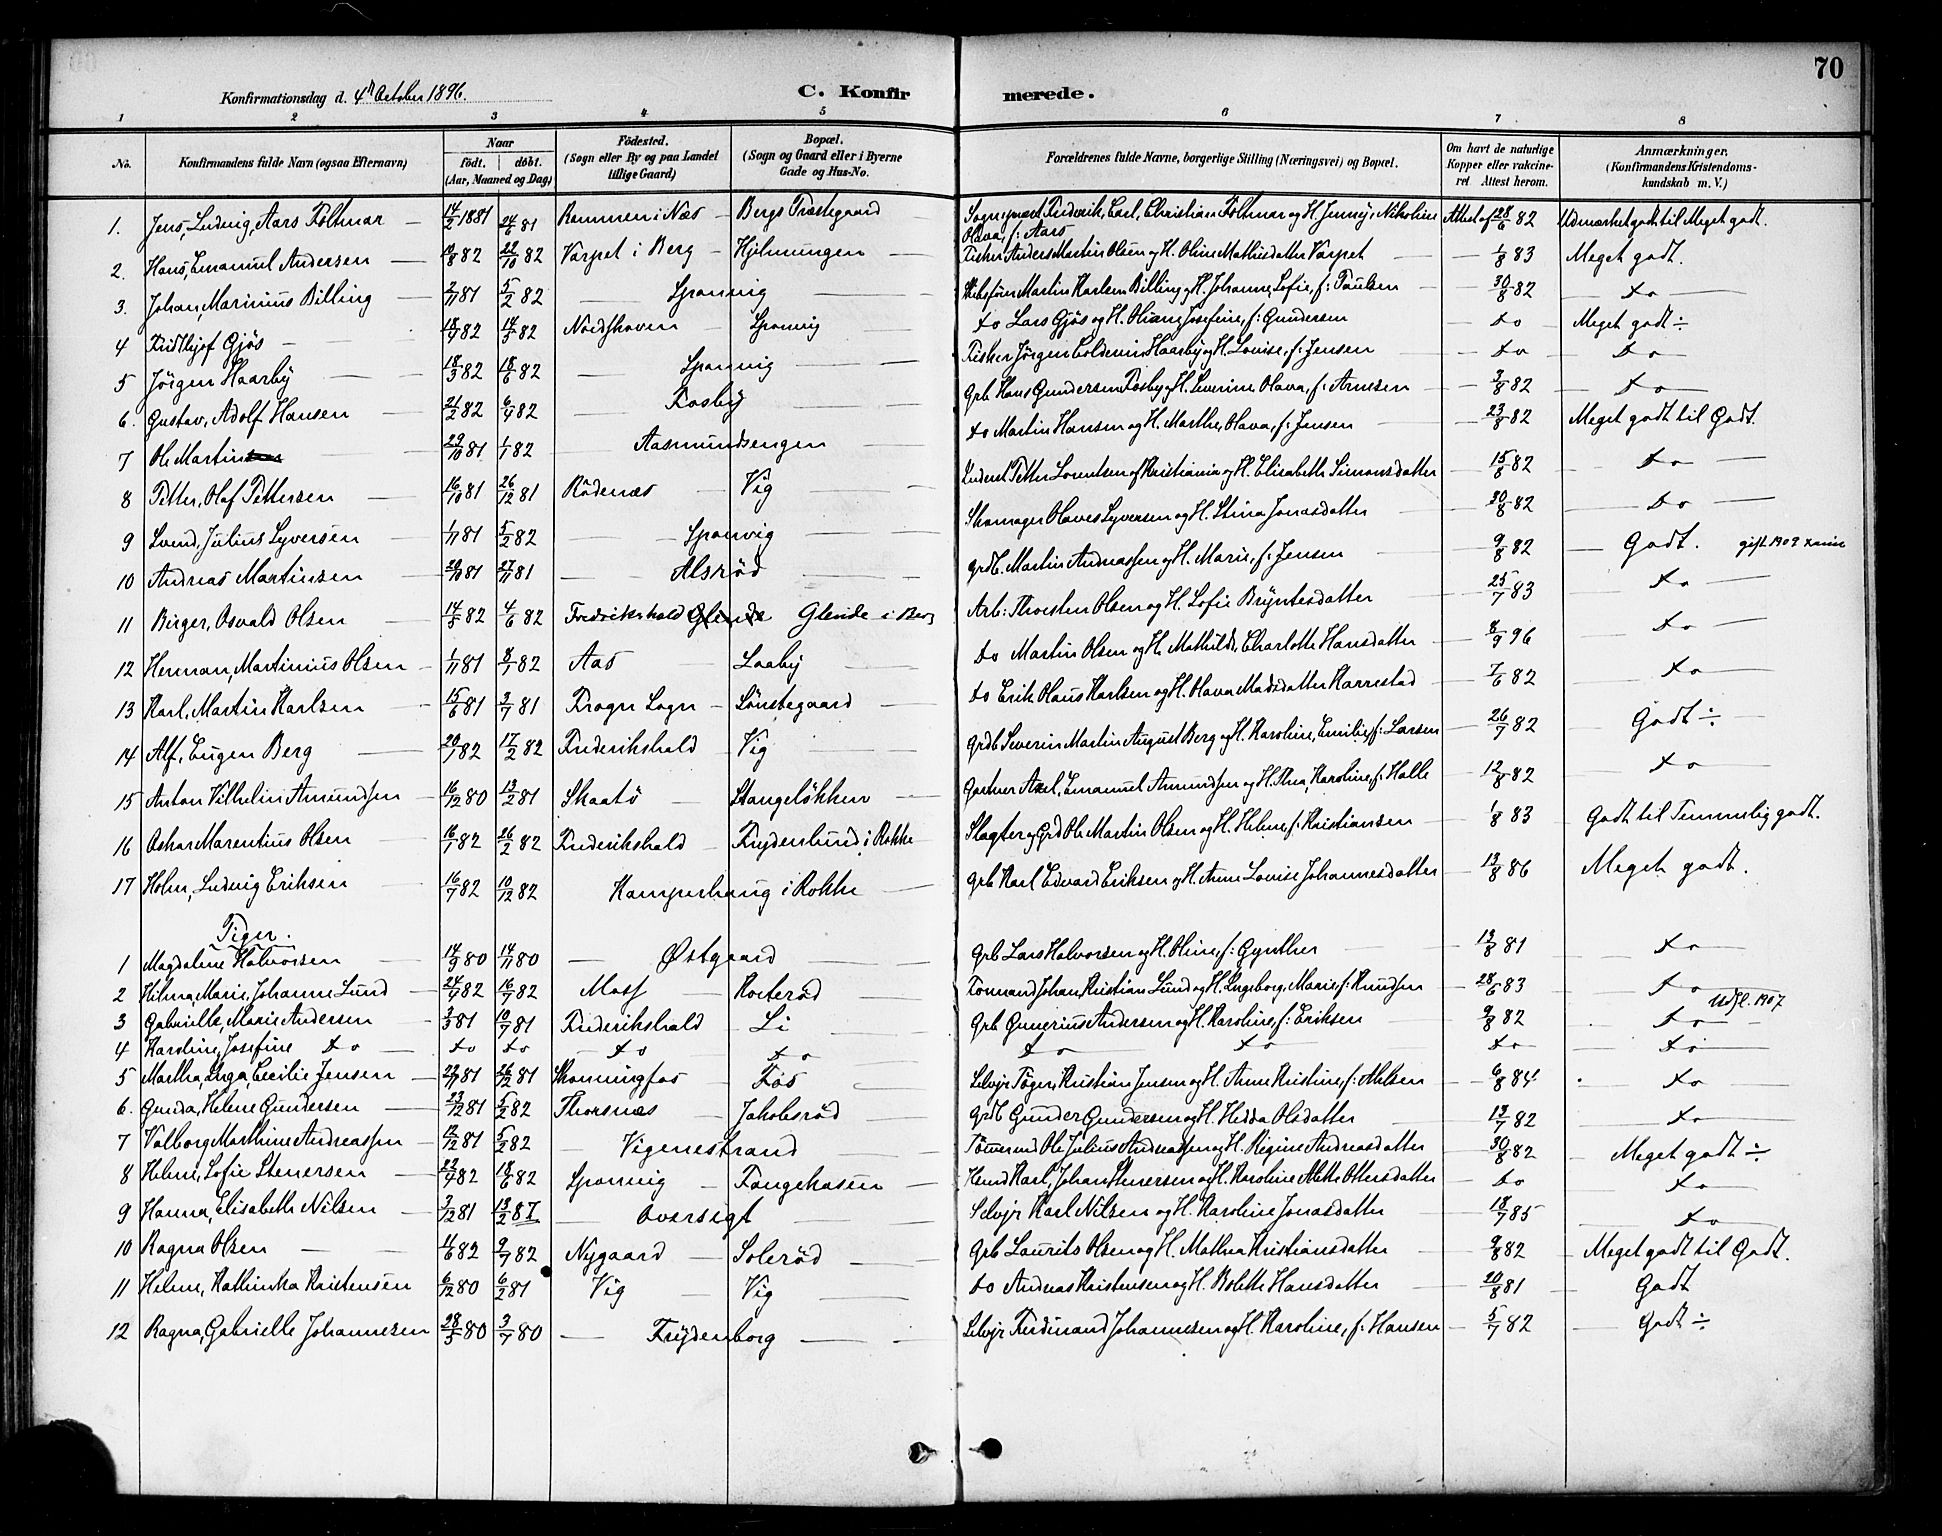 70
Konfirmationsdag d. 4de October 1896. C. Konfirmerede.
1 2 3 4 5 6 7 8
No. Konfirmandens fulde Navn (ogsaa Efternavn) Naar født. døbt. (Aar, Maaned og Dag) Fødested. (Sogn eller By og paa Landet tillige Gaard) Bopæl. (Sogn og Gaard eller i Byerne Gade og Hus-No. Forældrenes fulde Navne, borgerlige Stilling (Næringsvei) og Bopæl. Om havt de naturlige Kopper eller vakcineret. Attest herom. Anmærkninger. (Konfirmandens Kristendomskundskab m. V.)
1. Jens, Ludvig, Aars Foltmar 14/2 1881 24/6 81 Remmen i Næs Bergs Præstegaard Sognepræst Frederik, Carl, Christian Foltmar og H. Jenny, Nikoline Olava, f: Aars Attest af 28/6 82 Udmærket godt til Meget godt.
2. Hans, Emanuel Andersen 19/8 82 22/10 82 Varpet i Berg Hjelmungen Fisker Anders Martin Olsen og H. Oline Mathisdatter Varpet 1/8 83 Meget godt.
3. Johan, Marinius Billing 2/11 81 5/2 82 Sponvig Martin Karlsen Billing og H. Johanne, Sofie, f: Paulsen 30/8 82 do
4 Fridthjof Gjøs 18/1 82 14/5 82 Sponvig do Lars Gjøs og H. Oliane, Josefine, f: Gundersen do Meget godt ÷
5 Jørgen Haarby 18/3 82 18/6 82 Sponvig Fisker Jørgen Haarby og H. Louise, f: Jensen do do
6. Gustav, Adolf Hansen 21/2 82 6/4 82 Fosby Grb Hans Gundersen Fosby og H. Severine Olava, f: Arnesen 2/8 82 do
7 Ole Martin 29/10 81 1/1 82 Aasmundsengen do Martin Hansen og H. Marthe, Olava, f: Jensen 23/8 82 Meget godt til Godt.
8 Petter, Olaf Pettersen 16/10 81 26/12 81 Rødenæs Vig Petter Lorentsen af Kristiania og H. Elisabeth Simonsdatter 15/8 82 do
9 Svend, Julius Syversen 1/11 81 5/2 82 Sponvig Skomager Olaves Syversen og H. Stina Jonasdatter 30/8 82 do
10 Andreas Martinsen 20/10 81 27/11 81 Alsrød Grdb. Martin Andreassen og H. Marie, f: Jensen 9/8 82 Godt. gift 1909
11 Birger, Osvald Olsen 14/3 82 4/6 82 Fredrikshald Glende i Berg Arb: Thorsten Olsen og H. Sofie Bryntesdatter 25/7 83 do
12 Herman, Martinius Olsen 1/11 81 8/1 82 Aas Laaby do Martin Olsen og H. Mathilde, Charlotte Hansdatter 8/9 96 do
13 Karl, Martin Karlsen 15/6 81 3/7 81 Frogn Sogn Lønstegaard do Erik Olaus Karlsen og H. Olava Madsdatter Harrestad 7/6 82 do
14 Alf, Eugen Berg 20/1 82 17/2 82 Frederikshald Vig Grdb Severin Martin August Berg og H. Karoline, Emilie, f: Larsen 26/7 82 Godt ÷
15 Anton Vilhelm Amundsen 16/12 80 13/2 81 Skaatø Stangeløkken Gartner Axel, Emanuel Amundsen og H. Thea, Karoline, f: Halle 12/8 82 do
16 Oskar Marentius Olsen 16/1 82 26/2 82 Frederikshald Frydenlund i Rokke Slagter og Grd Ole Martin Olsen og H. Helene, f: Kristiansen 1/8 83 Godt til Temmelig godt.
17 Holm, Ludvig Eriksen 16/7 82 10/12 82 Kamperhaug i Rokke Grb Karl Edvard Eriksen og H. Anne Lovise Johannesdatter 13/8 86 Meget godt.
Piger.
1 Magdaline Halvorsen 14/9 80 14/11 80 Østgaard Grb Lars Halvorsen og H. Oline, f: Gynther 13/8 81 do
2 Hilma, Marie, Johanne Lund 24/4 82 16/7 82 Moss Rorterød Johan Kristian Lund og H. Ingeborg, Marie, f: Knudsen 28/6 83 do
3 Gabrielle, Marie Andersen 3/3 81 10/7 81 Frederikshald Li Grb Gunerius Andersen og H. Karoline, f: Eriksen 9/8 82 do Udfl. 1907
4 Karoline, Josefine do do do do do do do do do
5 Martha, Inga, Cecilie Jensen 22/9 81 26/12 81 Skonningfos Fos Selvejr Tøger, Kristian Jensen og H. Anne Kristine, f: Nilsen 6/8 84 do
6. Gunda, Helene Gundersen 23/12 81 5/2 82 Thorsnæs Jakobsrød Grdb Gunder Gundersen og H. Hedda Olsdatter 13/7 82 do
7 Valborg Marthine Andreassen 12/12 81 5/2 82 Vigenestrand Ole Julius Andreassen og H. Regine Andreasdatter 30/8 82 Meget godt ÷
8 Helene, Sofie Stenersen 22/4 82 18/6 82 Sponvig Tangekasen Karl, Johan Stenersen og H. Karoline Mette Ottersdatter do do
9 Hanna, Elisabeth Nilsen 3/12 81 13/2 87 Oversigt Selvejr Karl Nilsen og H. Karoline Jonasdatter 18/7 85 do
10 Ragna Olsen 11/6 82 9/7 82 Nygaard Solerød Grb Laurits Olsen og H. Mathea Kristiansdatter 9/8 82 Meget godt til Godt.
11 Helene, Kathinka Kristensen 6/12 80 6/2 81 Vig Vig do Andreas Kristensen og H. Bolette Hansdatter 20/8 81 Godt
12 Ragna, Gabrielle Johannesen 28/5 80 3/7 80 Frydenborg Selvejr Ferdinand Johannesen og H. Karoline, f: Hansen 5/7 82 Godt ÷